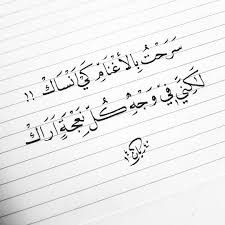 سَرَحْتُ بِالأَغْنَامِ كَيْ أَنْسَاكْ !!
لكِنَّنِي فِي وَجْهِ كُلِّ نَعْجَةٍ أَرَاكْ